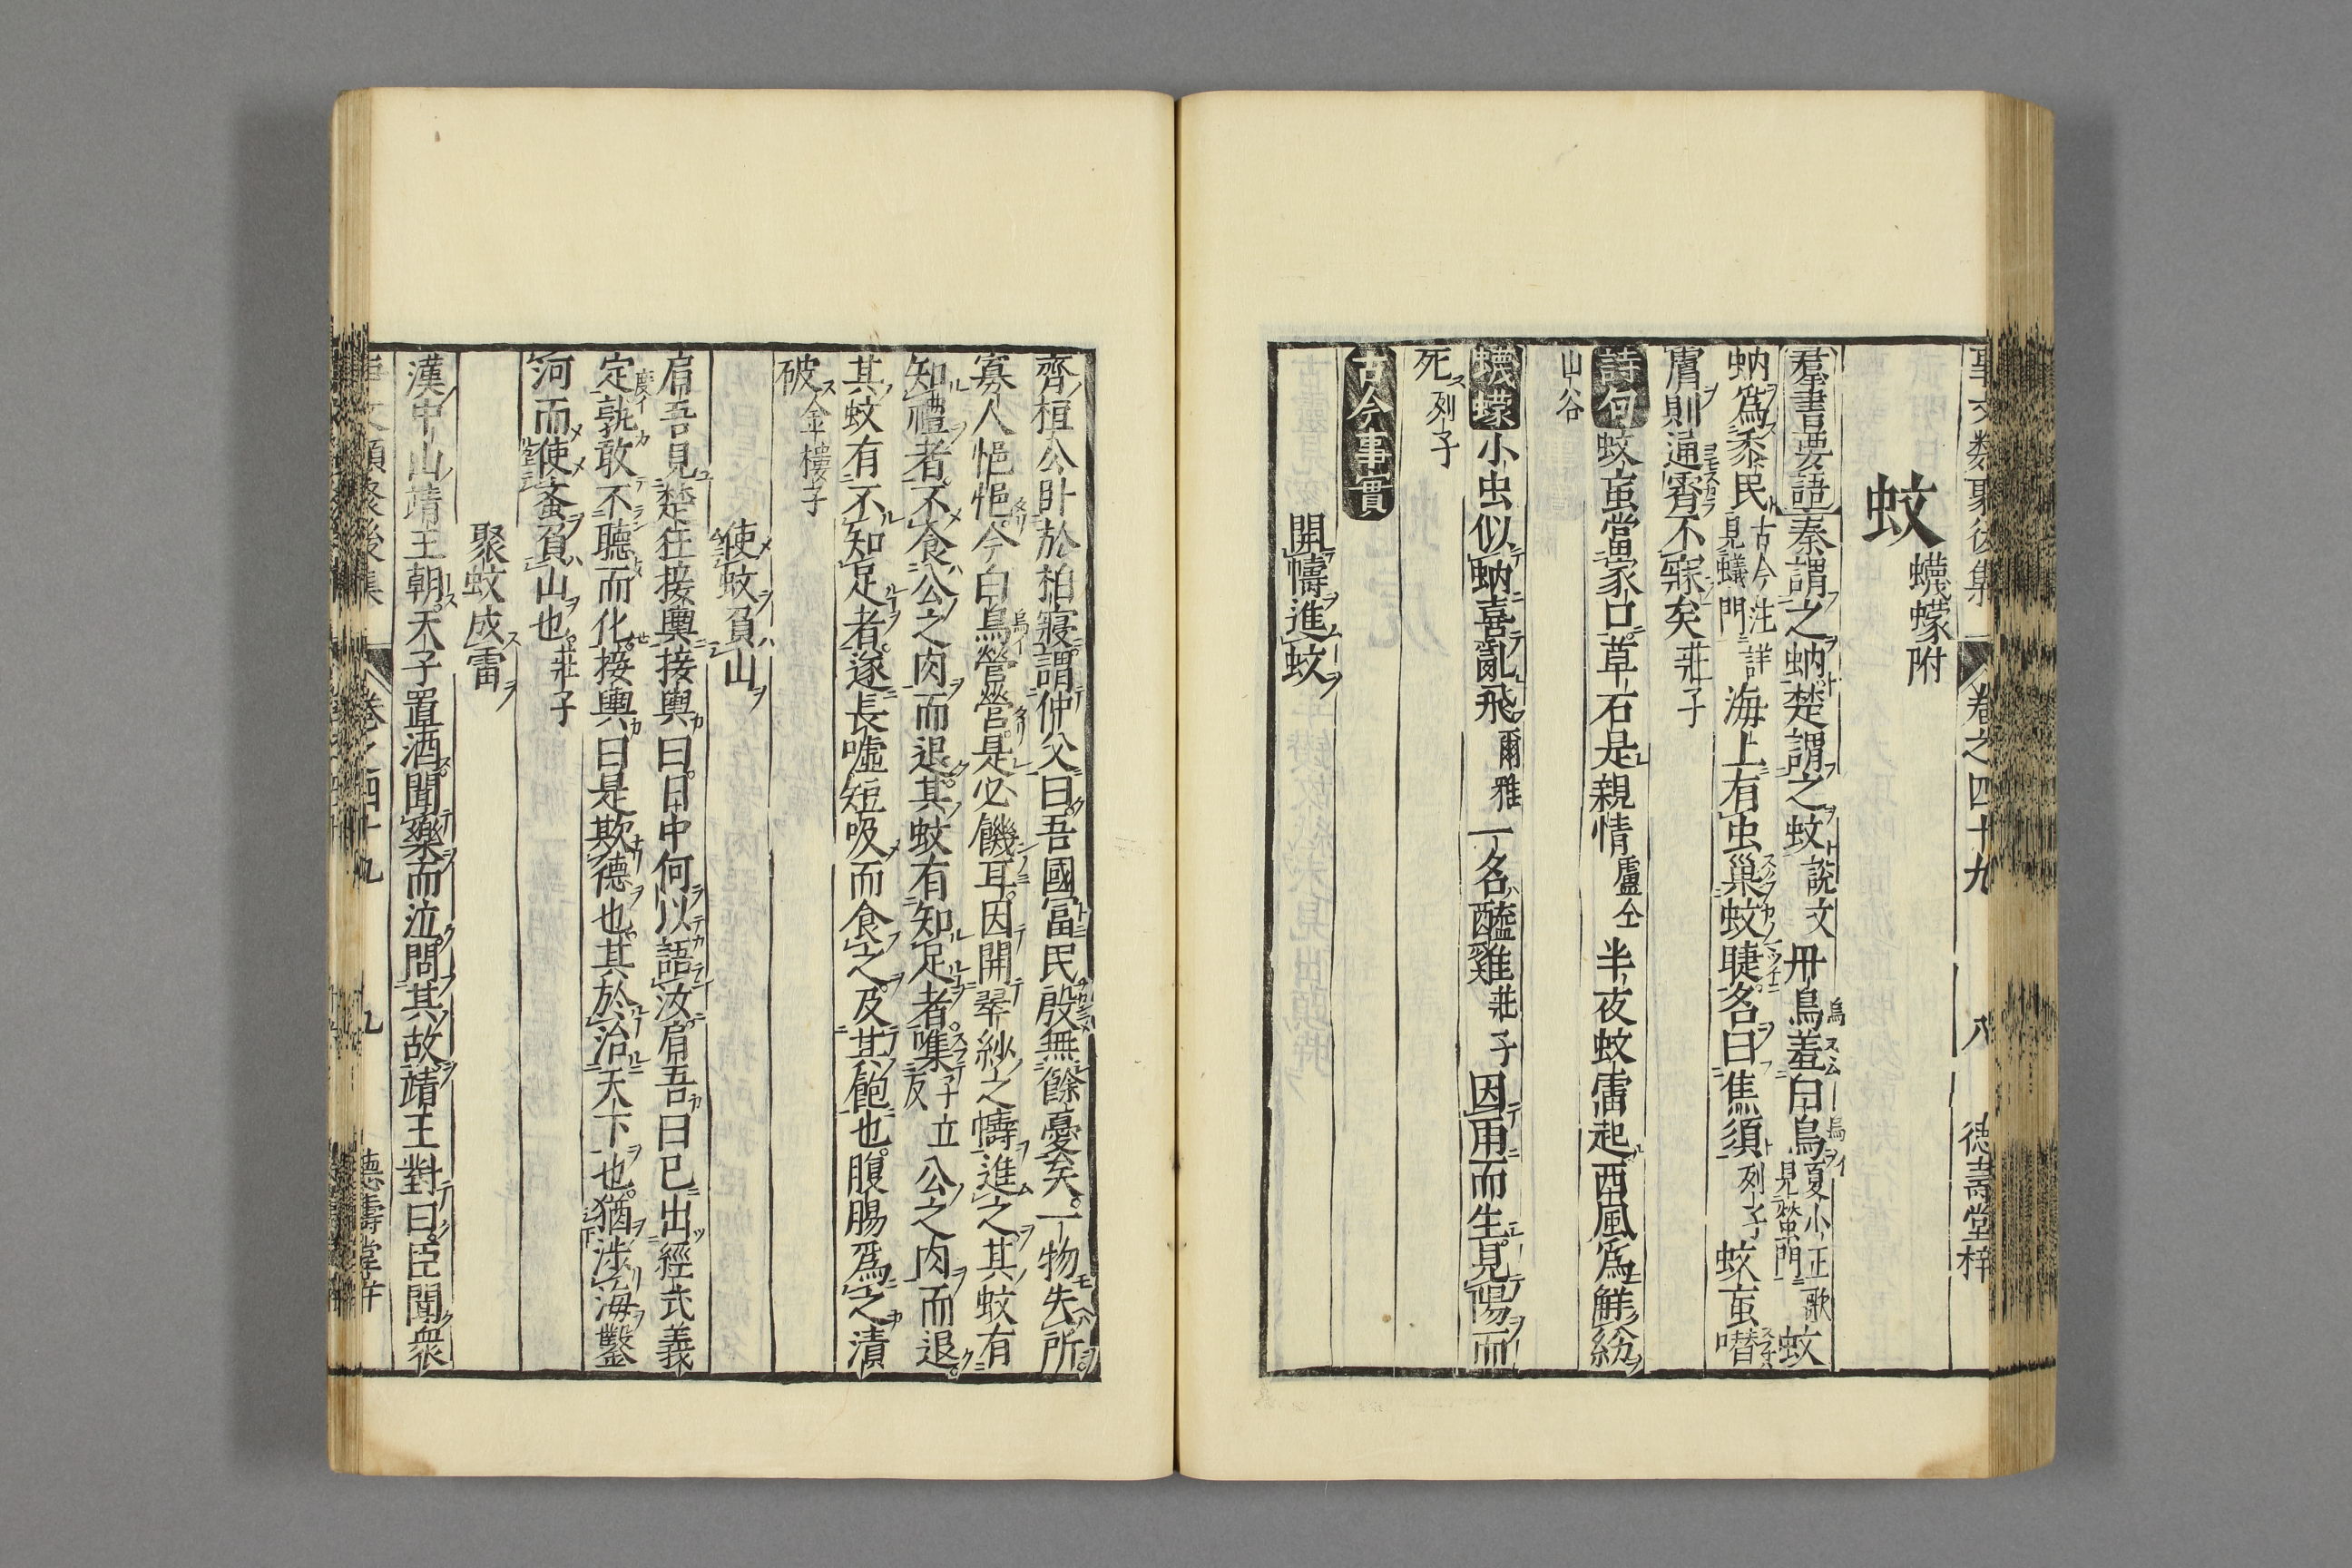 事文類聚後集 卷之四十九 八 德壽堂梓
蚊 蠛蠓附
羣書要語 秦謂之蚋楚謂之蚊 說文 丹鳥羞白鳥 夏小正歌見螢門 蚊
蚋爲黍民 古今注詳見蟻門 海上有虫巢蚊睫名曰焦須 列子 蚊䖟噆
膚則通霄不寐矣 莊子
詩句 蚊䖟當家口草石是親情 盧仝 半夜蚊雷起西風爲觧紛
山谷
蠛蠓 小虫似蚋喜亂飛 爾雅 一名醯雞 莊子 因用而生見陽而
死 列子
古今事實
開幬進蚊
齊桓公卧於栢寢謂仲父曰吾國富民殷無餘憂矣一物失所
寡人悒悒今白鳥營營是必饑耳因開翠紗之幬進之其蚊有
知禮者不食公之肉而退其蚊有知足者噍 子立反 公之肉而退
其蚊有不知足者遂長噓短吸而食之及其飽也腹腸爲之潰
破 金樓子
使蚊負山
肩吾見楚狂接輿接輿曰日中何以語汝肩吾曰已出經式義
定孰敢不聽而化接輿曰是欺德也其於治天下也猶涉海鑿
河而使蚉負山也 莊子
聚蚊成雷
漢中山靖王朝天子置酒聞樂而泣問其故靖王對曰臣聞衆
卷之四十九 九